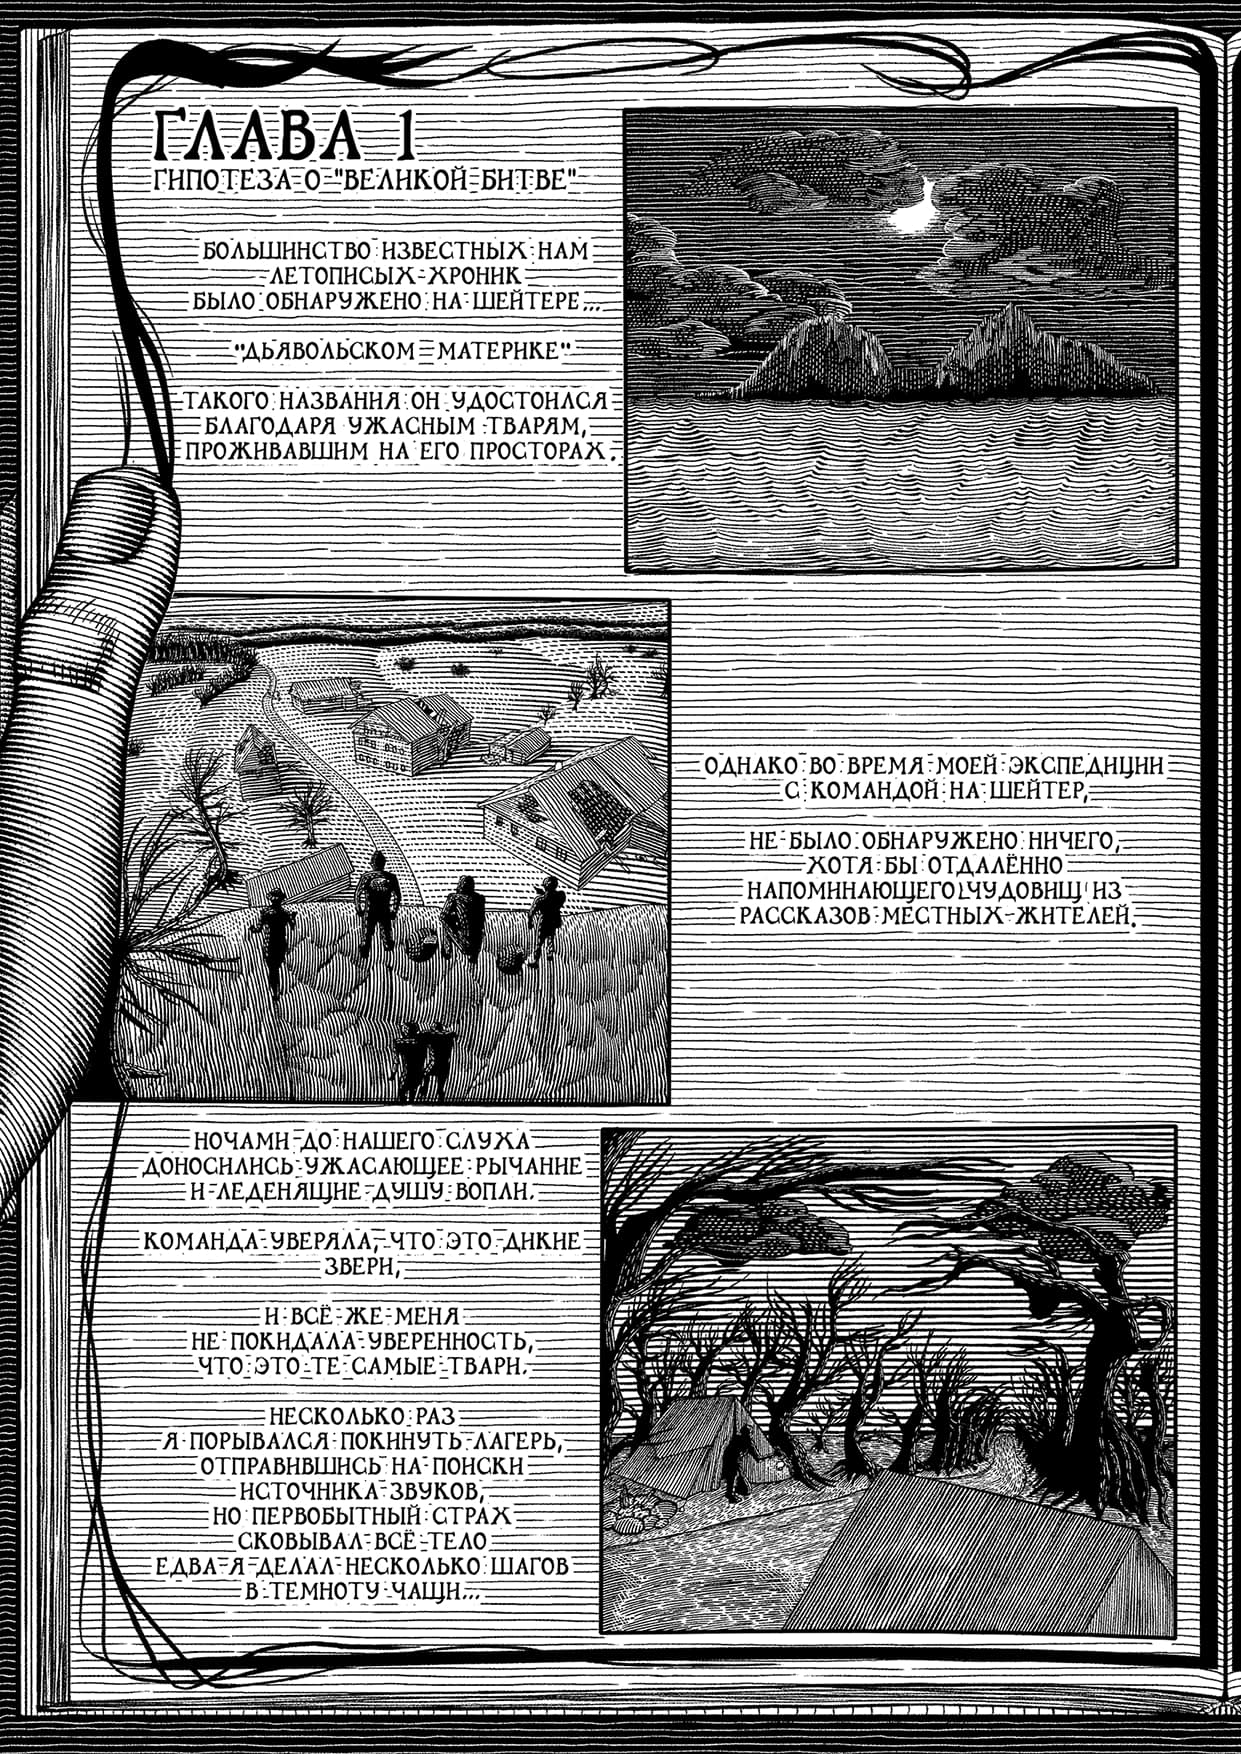 ГЛАВА 1
ГИПОТЕЗА О "ВЕЛИКОЙ БИТВЕ"
БОЛЬШИНСТВО ИЗВЕСТНЫХ НАМ
ЛЕТОПИСЫХ ХРОНИК
БЫЛО ОБНАРУЖЕНО НА ШЕЙТЕРЕ...
"ДЬЯВОЛЬСКОМ МАТЕРИКЕ"
ТАКОГО НАЗВАНИЯ ОН УДОСТОИЛСЯ
БЛАГОДАРЯ УЖАСНЫМ ТВАРЯМ,
ПРОЖИВАВШИМ НА ЕГО ПРОСТОРАХ.
ОДНАКО ВО ВРЕМЯ МОЕЙ ЭКСПЕДИЦИИ
С КОМАНДОЙ НА ШЕЙТЕР,
НЕ БЫЛО ОБНАРУЖЕНО НИЧЕГО,
ХОТЯ БЫ ОТДАЛЁННО
НАПОМИНАЮЩЕГО ЧУДОВИЩ ИЗ
РАССКАЗОВ МЕСТНЫХ ЖИТЕЛЕЙ.
НОЧАМИ ДО НАШЕГО СЛУХА
ДОНОСИЛИСЬ УЖАСАЮЩЕЕ РЫЧАНИЕ
И ЛЕДЕНЯЩИЕ ДУШУ ВОПЛИ.
КОМАНДА УВЕРЯЛА, ЧТО ЭТО ДИКИЕ
ЗВЕРИ,
И ВСЁ ЖЕ МЕНЯ
НЕ ПОКИДАЛА УВЕРЕННОСТЬ,
ЧТО ЭТО ТЕ САМЫЕ ТВАРИ.
НЕСКОЛЬКО РАЗ
Я ПОРЫВАЛСЯ ПОКИНУТЬ ЛАГЕРЬ,
ОТПРАВИВШИСЬ НА ПОИСКИ
ИСТОЧНИКА ЗВУКОВ,
НО ПЕРВОБЫТНЫЙ СТРАХ
СКОВЫВАЛ ВСЁ ТЕЛО
ЕДВА Я ДЕЛАЛ НЕСКОЛЬКО ШАГОВ
В ТЕМНОТУ ЧАЩИ...